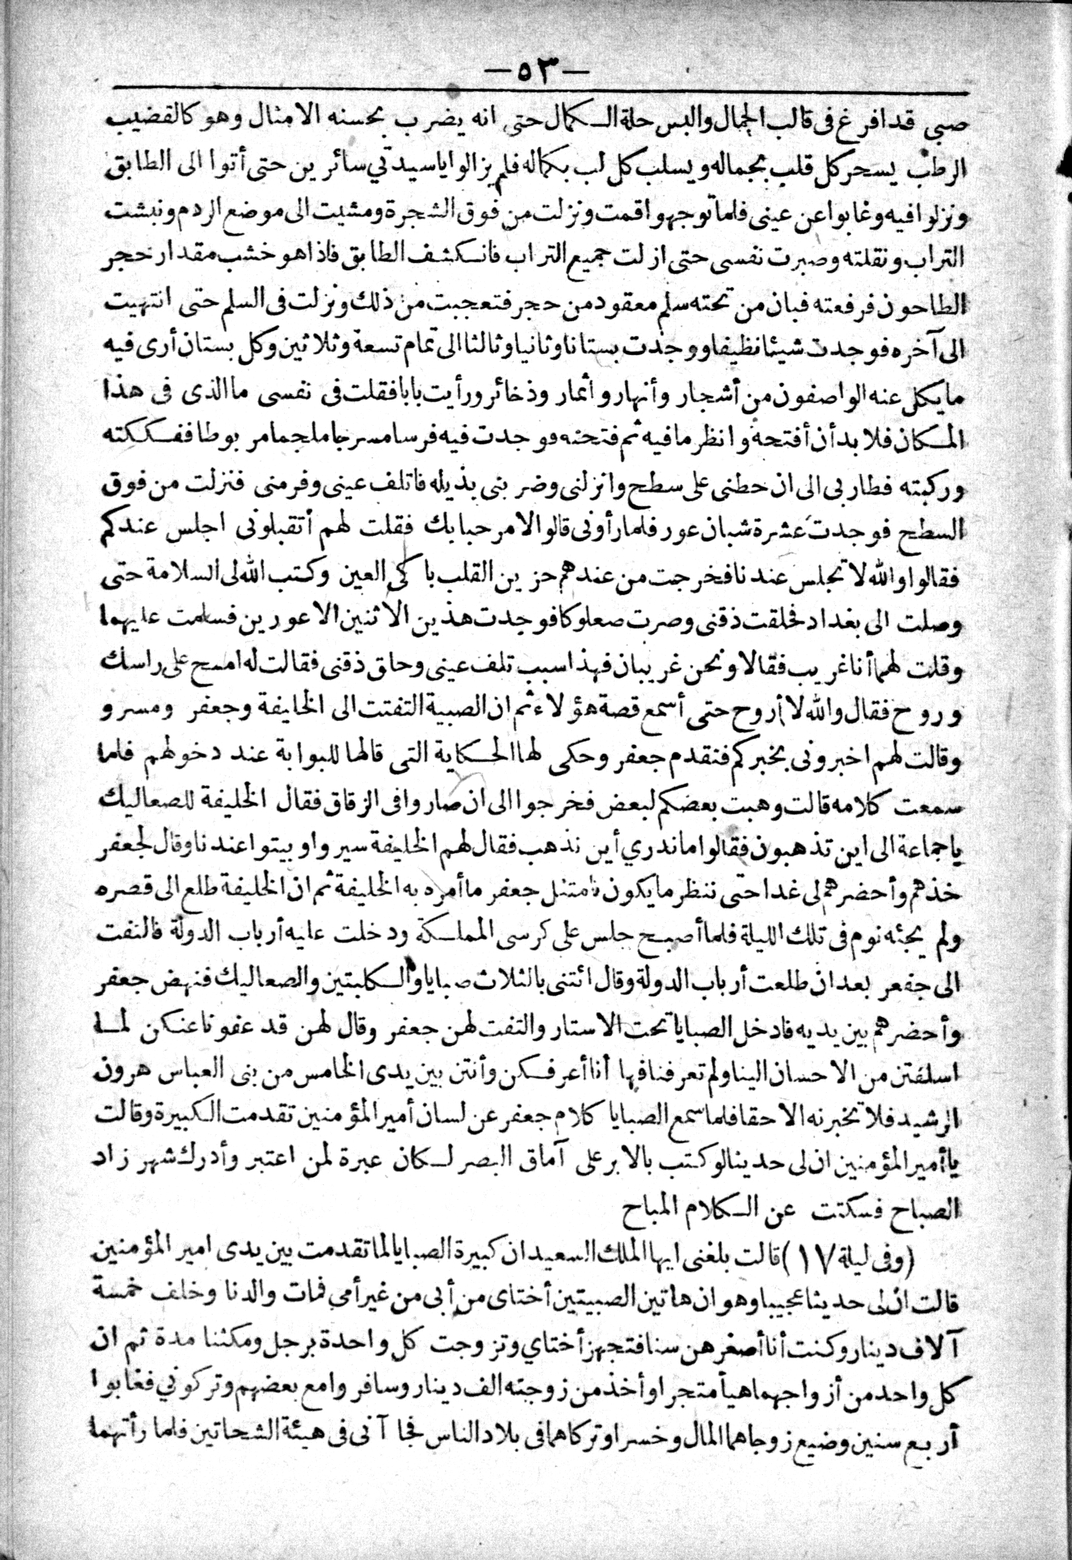 —٥٣—
صبي قد افرغ في قالب الجمال والبس حلة الكمال حتى انه يضرب بحسنه الامثال وهو كالقضيب
الرطب يسحر كل قلب بجماله ويسلب كل لب بكماله فلم يزالوا يا سيدتي سائرين حتى أتوا الى الطابق
ونزلوا فيه وغابوا عن عيني فلما توجهوا قمت ونزلت من فوق الشجرة ومشيت الى موضع الردم ونبشت
التراب ونقلته وصبرت نفسي حتى ازلت جميع التراب فانكشف الطابق فاذا هو خشب مقدار حجر
الطاحون فرفعته فبان من تحته سلم معقود من حجر فتعجبت من ذلك ونزلت في السلم حتى انتهيت
الى آخره فوجدت شيئا نظيفا ووجدت بستانا وثانيا وثالثا الى تمام تسعة وثلاثين وكل بستان أرى فيه
ما يكل عنه الواصفون من أشجار وأنهار وأثمار وذخائر ورأيت بابا فقلت في نفسي ما الذى فى هذا
المكان فلا بد أن أفتحه وانظر ما فيه ثم فتحته فوجدت فيه فرسا مسرجا ملجما مربوطا ففككته
وركبته فطار بي الى ان حطني على سطح وانزلني وضربني بذيله فاتلف عيني وفر مني فنزلت من فوق
السطح فوجدت عشرة شبان عور فلما رأوني قالوا لا مرحبا بك فقلت لهم أتقبلوني اجلس عندكم
فقالوا والله لا تجلس عندنا فخرجت من عندهم حزين القلب باكي العين وكتب الله لي السلامة حتى
وصلت الى بغداد فحلقت ذقني وصرت صعلوكا فوجدت هذين الاثنين الاعورين فسلمت عليهما
وقلت لهما أنا غريب فقالا ونحن غريبان فهذا سبب تلف عيني وحلق ذقني فقالت له امسح على راسك
وروح فقال والله لا أروح حتى أسمع قصة هؤلاء ثم ان الصبية التفتت الى الخليفة وجعفر ومسرو
وقالت لهم اخبروني بخبركم فتقدم جعفر وحكى لها الحكاية التي قالها للبوابة عند دخولهم فلما
سمعت كلامه قالت وهبت بعضكم لبعض فخرجوا الى ان صاروا في الزقاق فقال الخليفة للصعاليك
يا جماعة الى اين تذهبون فقالوا ما ندري أين نذهب فقال لهم الخليفة سيروا وبيتوا عندنا وقال لجعفر
خذهم وأحضرهم لي غدا حتى ننظر ما يكون فامتثل جعفر ما أمره به الخليفة ثم ان الخليفة طلع الى قصره
ولم يجئه نوم في تلك الليلة فلما أصبح جلس على كرسي المملكة ودخلت عليه أرباب الدولة فالتفت
الى جفعر بعد ان طلعت أرباب الدولة وقال ائتني بالثلاث صبايا والكلبتين والصعاليك فنهض جعفر
وأحضرهم بين يديه فادخل الصبايا تحت الاستار والتفت لهن جعفر وقال لهن قد عفونا عنكن لما
اسلفتن من الاحسان الينا ولم تعرفنا فها أنا أعرفكن وأنتن بين يدى الخامس من بنى العباس هرون
الرشيد فلا تخبرنه الا حقا فلما سمع الصبايا كلام جعفر عن لسان أمير المؤمنين تقدمت الكبيرة وقالت
يا أمير المؤمنين ان لي حديثا لو كتب بالابر على آماق البصر لكان عبرة لمن اعتبر وأدرك شهر زاد
الصباح فسكتت عن الكلام المباح
(وفى ليلة ١٧) قالت بلغني ايها الملك السعيد ان كبيرة الصبايا لما تقدمت بين يدى امير المؤمنين
قالت ان لي حديثا عجيبا وهو ان هاتين الصبيتين أختاى من أبى من غير أمي فمات والدنا وخلف خمسة
آلاف دينار وكنت أنا أصغرهن سنا فتجهز أختاي وتزوجت كل واحدة برجل ومكثنا مدة ثم ان
كل واحد من أزواجهما هيأ متجرا وأخذ من زوجته الف دينار وسافروا مع بعضهم وتركوني فغابوا
أربع سنين وضيع زوجاهما المال وخسرا وتركاهما في بلاد الناس فجا آنى فى هيئة الشحاتين فلما رأتهما